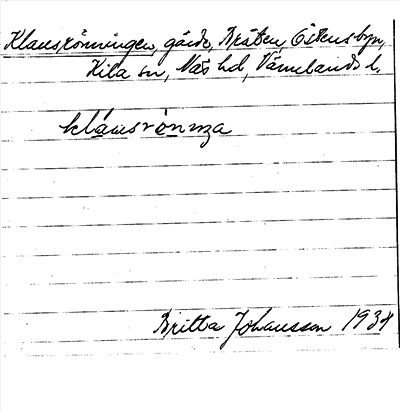 Klausrönningen, gärde, Bråten, Östensbyn,
Kila sn, Näs hd, Värmlands l.
klausrönnza
Britta Johansson 1934